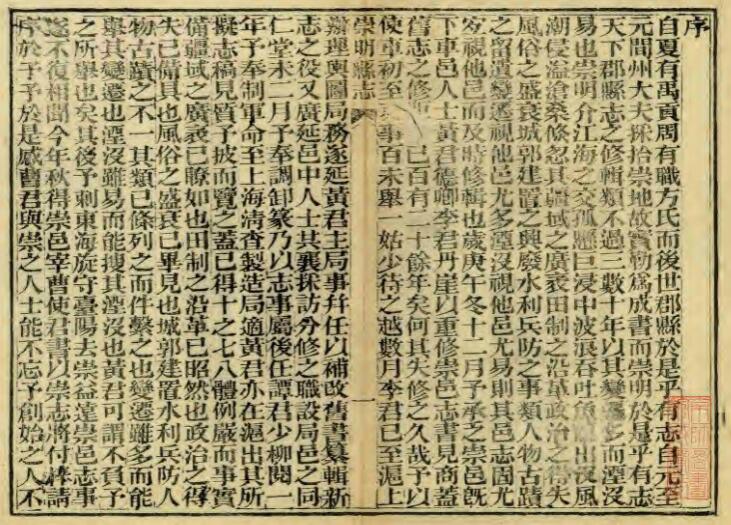 序
自夏有禹貢周有職方氏而後世郡縣於是乎有志自元至
元間州大夫採拾崇地故實勒爲成書而崇明於是乎有志
天下郡縣志之修輯類不過三數十年以其變遷多而湮沒
易也崇明介江海之交孤懸巨浸中波浪吞吐魚出沒風
潮侵溢滄桑倏忽其疆域之廣袤田制之沿革政治之得失
風俗之盛衰城郭建置之興廢水利兵防之事類人物古蹟
之留遺變遷視他邑尤多湮沒視他邑尤易則其邑志固尤
宜視他邑而及時修輯也歲庚午冬十二月予承乏崇邑旣
下車邑人士黃君德卿李君丹崖以重修崇邑志書見商蓋
舊志之修已百有二十餘年矣何其失修之久哉予以
使車初至事百未舉一姑少待之越數月李君已至滬上
崇明縣志
一
辦理輿圖局務遂延黃君主局事幷任以補改舊書纂輯新
志之役又廣延邑中人士共襄採訪分修之職設局邑之同
仁堂未二月予奉調卸篆乃以志事屬後任譚君少柳閱一
年予奉制軍命至上海淸查製造局適黃君亦在滬出其所
擬志稿見質予披而覽之蓋已得十之七八體例嚴而事實
備疆域之廣袤已瞭如也田制之沿革已昭然也政治之得
失已備具也風俗之盛衰已畢見也城郭建置水利兵防人
物古蹟之不一其類已條列之而件繫之也變遷雖多而能
舉其變遷也湮沒雖易而能搜其湮沒也黃君可謂不負予
之所舉也矣其後予刺東海旋守臺陽去崇益遠崇邑志事
遂不復相聞今年秋得崇邑宰曹使君書以崇志將付梓請
序於予予於是感曹君與崇之人士能不忘予創始之人不